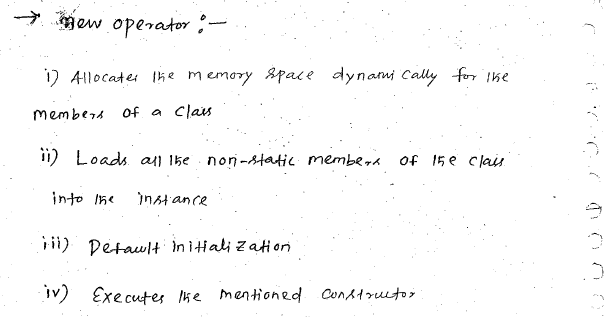 → new operator :-
i) Allocates the memory space dynamically for the
members of a class
ii) Loads all the non-static members of the class
into the instance
iii) Default initialization
iv) Executes the mentioned constructor